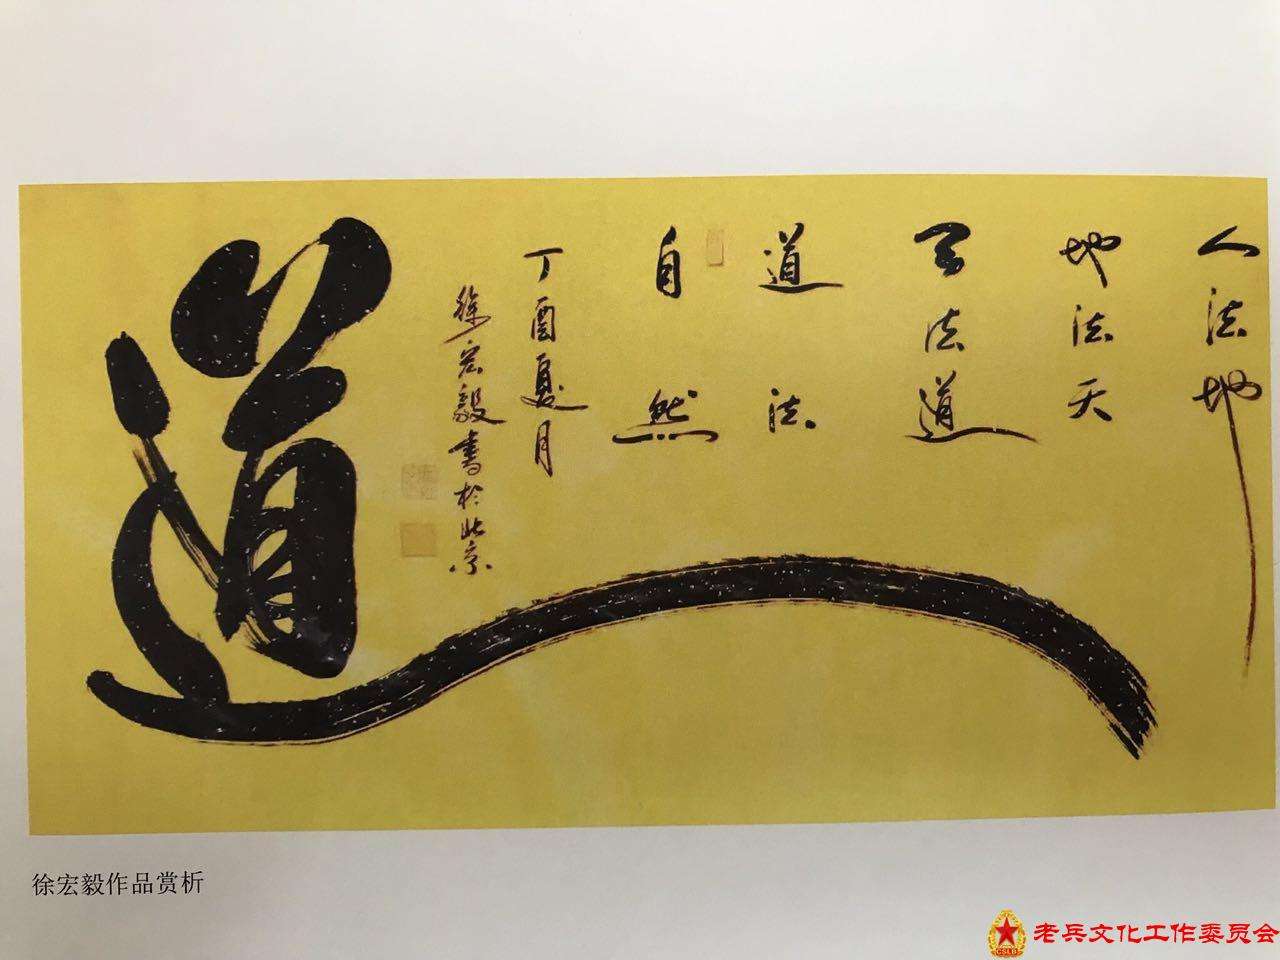 人法地
地法天
天法道
道法
自然
丁酉夏月
徐宏毅書於北京
道
徐宏毅作品赏析
CSLB
老兵文化工作委员会